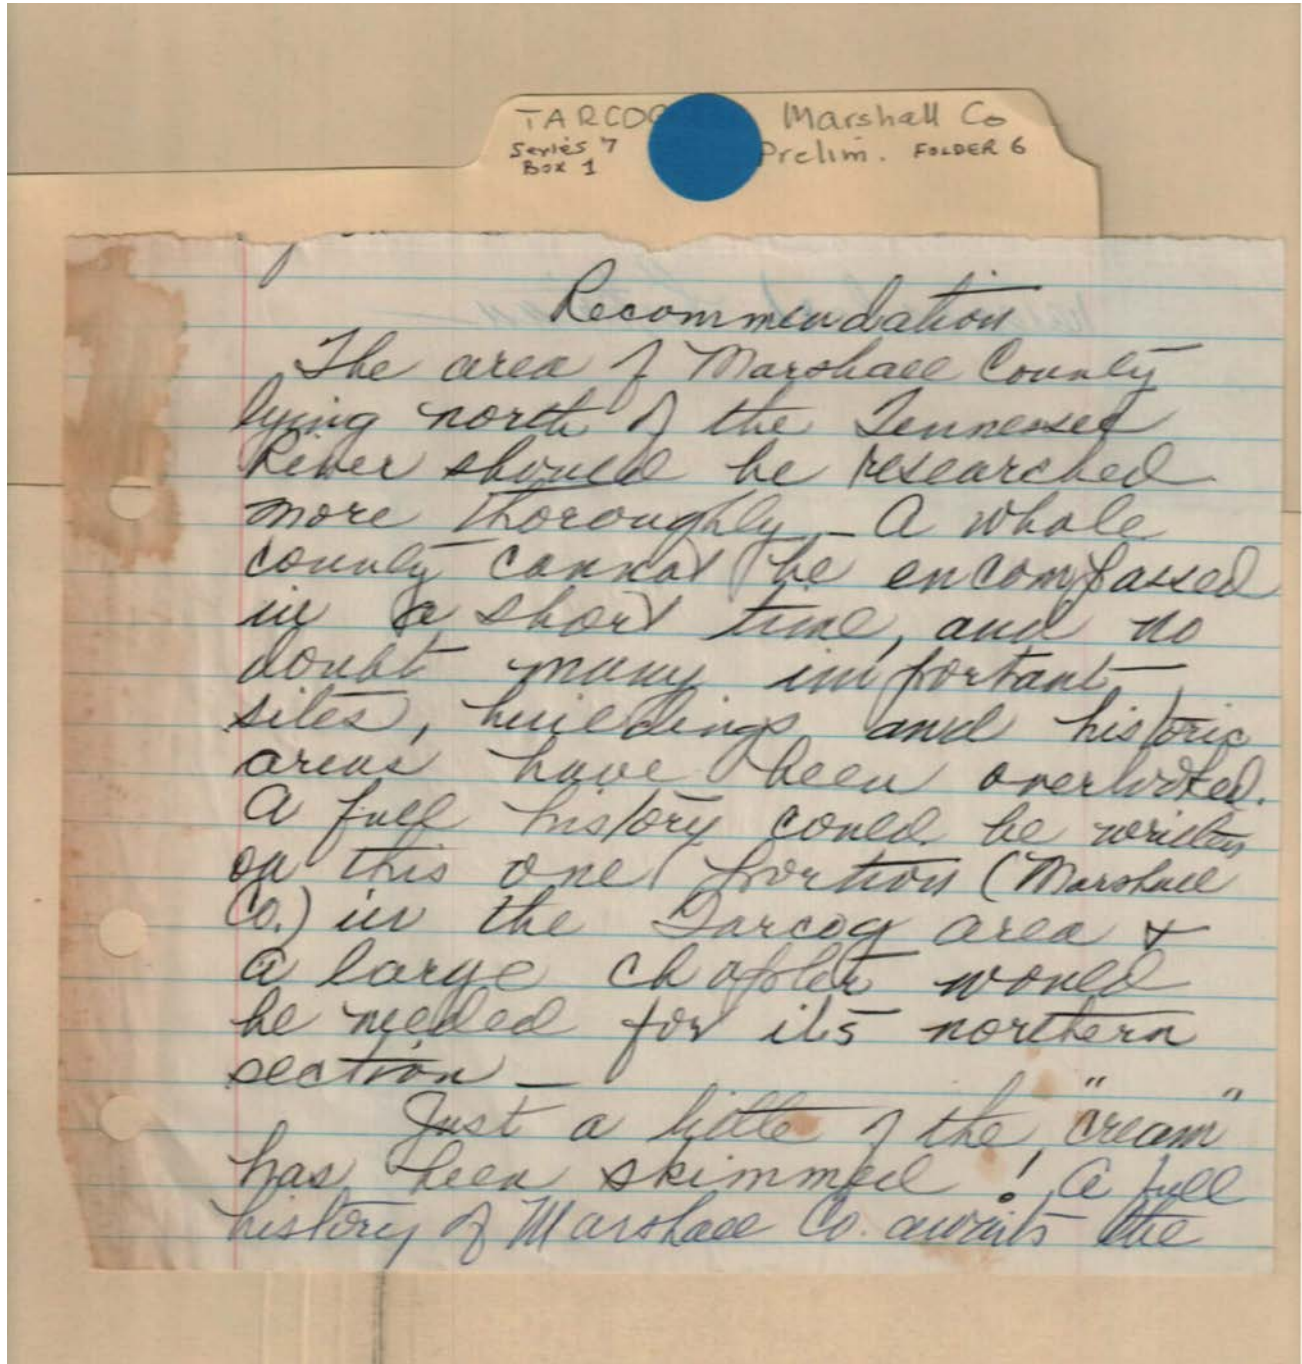 TARCOG Marshall Co
Series 7 Prelim. FOLDER 6
Box 1
Recommendation
The area of Marshall County
lying north of the Tennessee
River should be researched
more thoroughly — A whole
county cannot be encompassed
in a short time, and no
doubt many important
sites, buildings and historic
areas have been overlooked.
A full history could be written
on this one portion (Marshall
Co.) in the Tarcog area &
a large chapter would
be needed for its northern
section —
Just a little of the "cream"
has been skimmed! A full
history of Marshall Co. awaits the